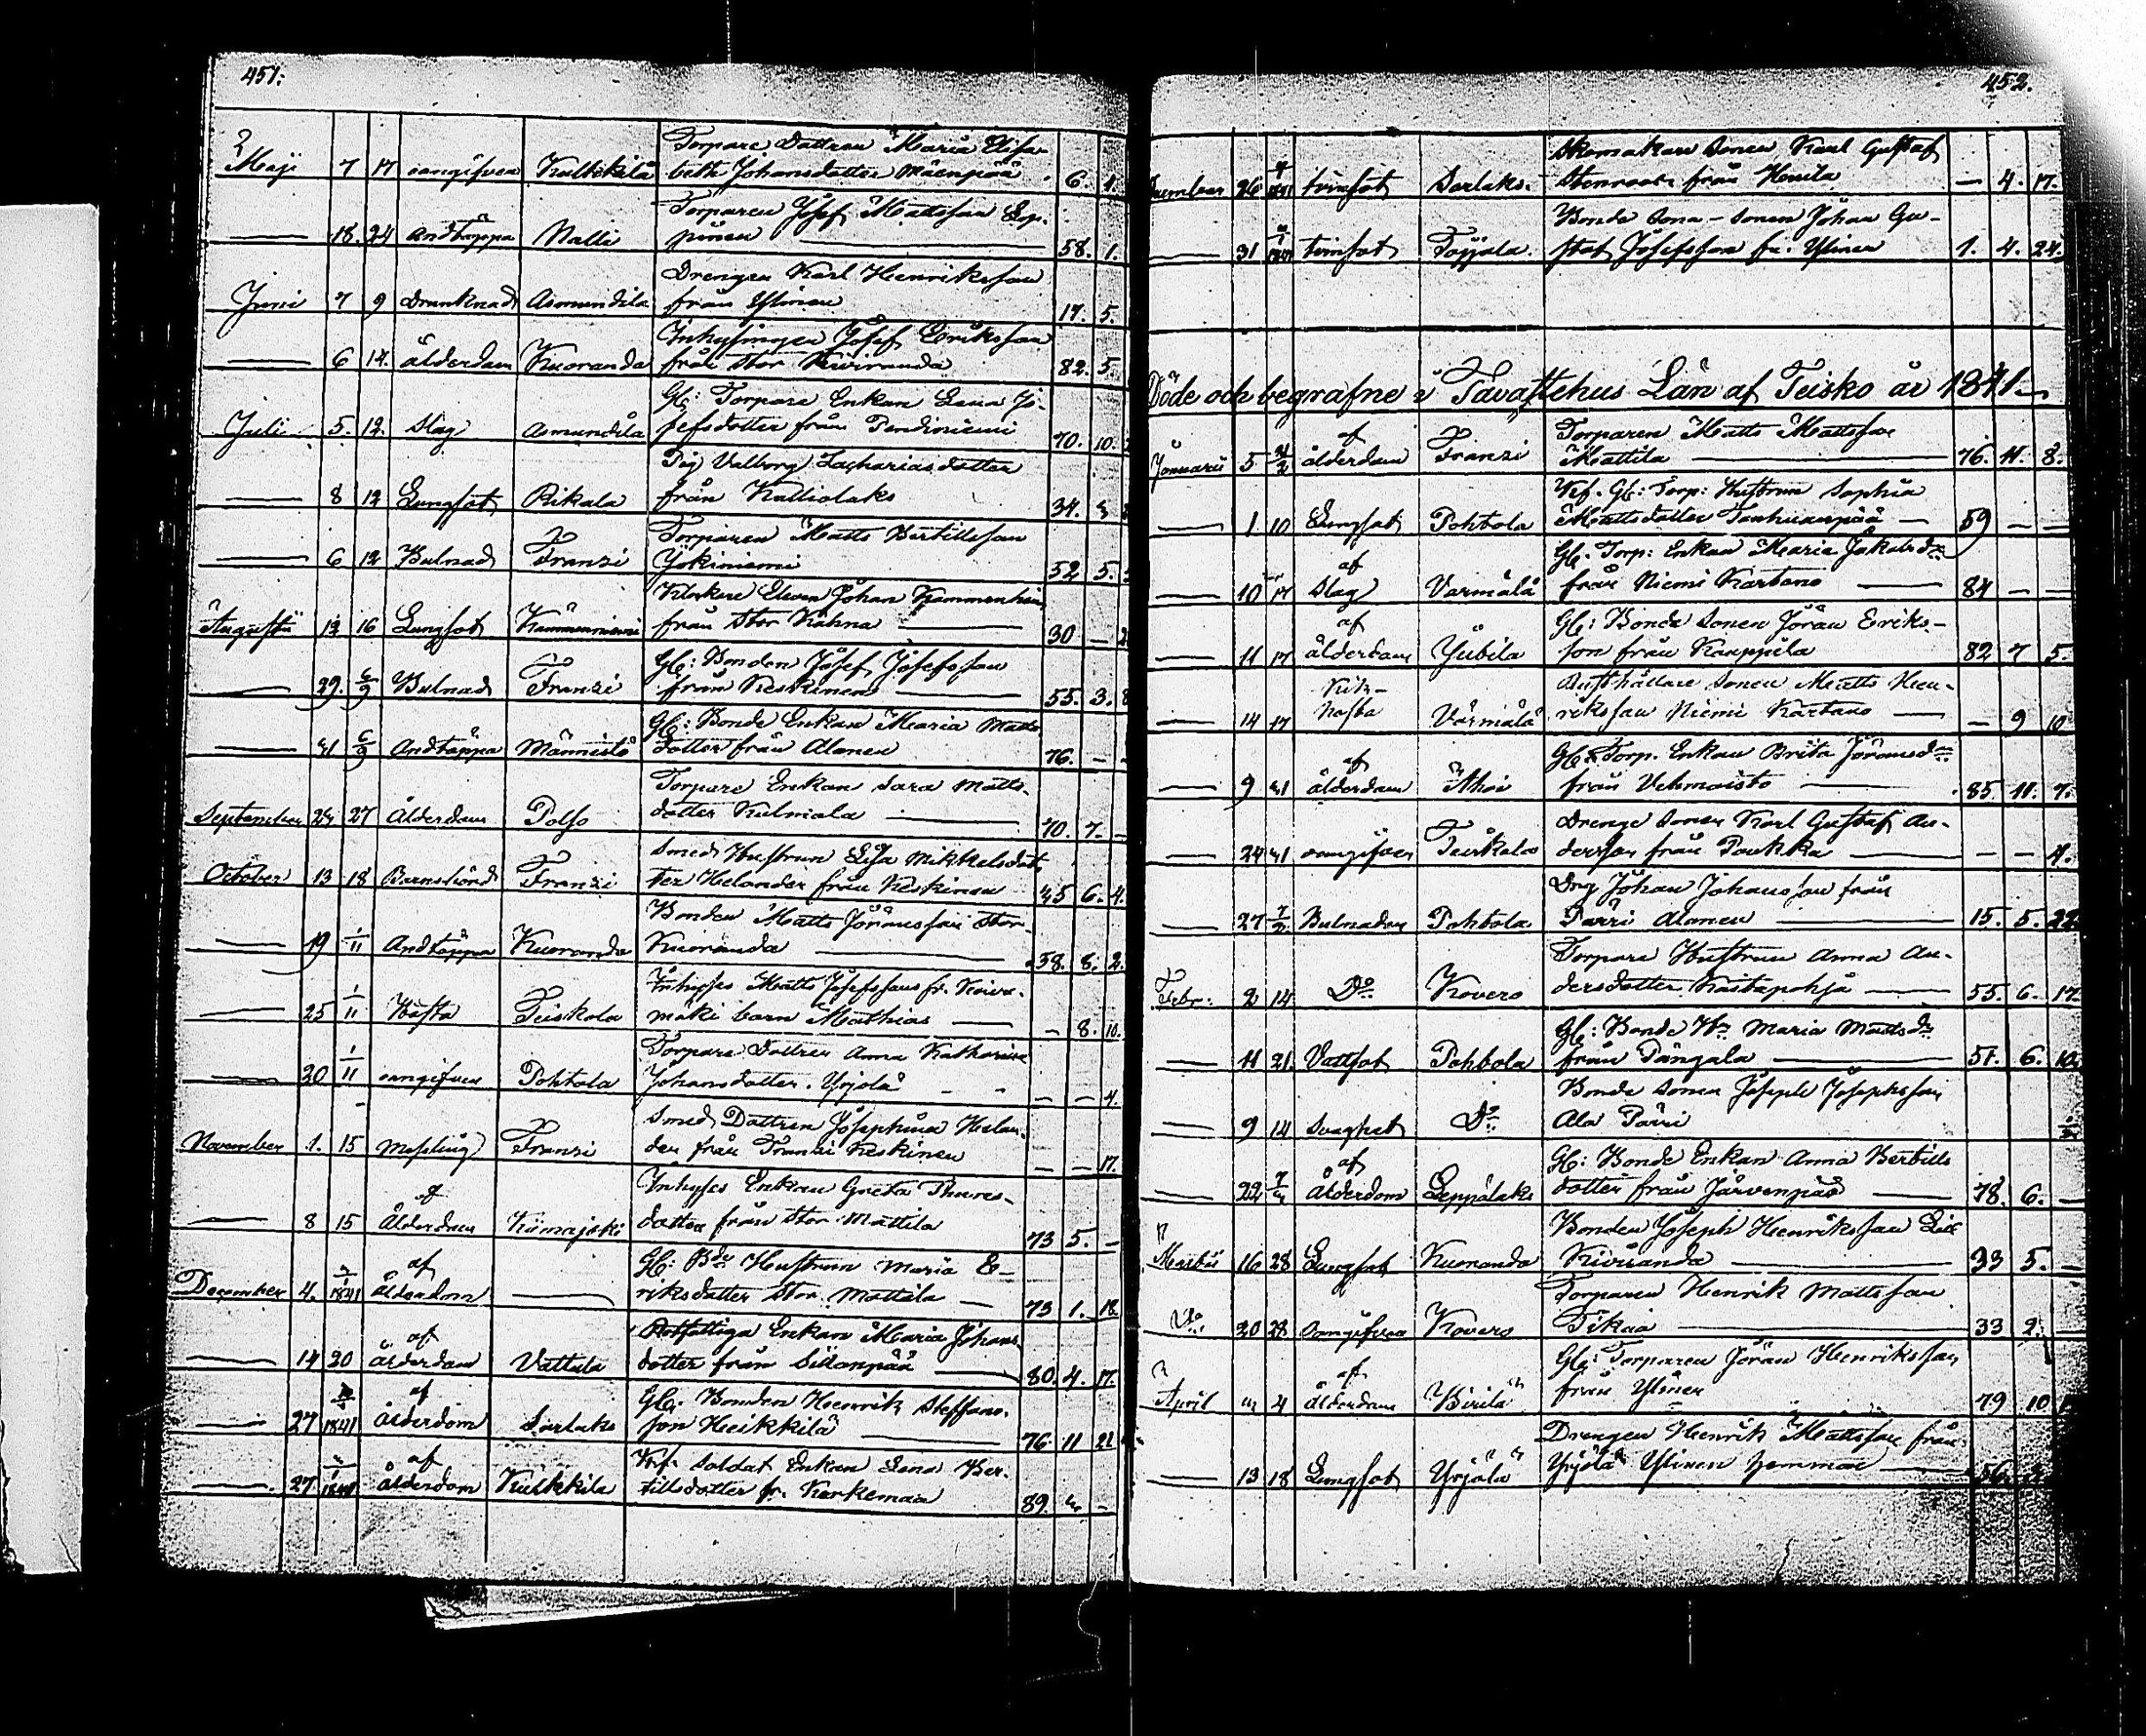 451.
Maji 7 17 oangifven Kulkkila Torpare Dottren Maria Elisa-
beth Johansdotter Mäenpää 6. 1.
18. 24 Andtäppa Nalli Torparen Josef Mattsson Lep-
pänen 58. 1.
Juni 7 9 Drunknad Asmundila Drengen Karl Henriksson
från Ylinen 17. 5.
6 14. ålderdom Kuoranda Inhysingen Josef Eriksson
från Stor Kiviranda 82. 5.
Juli 5. 12. Slag Asmundila Gl: Torpare Enkan Lena Jo-
sefsdotter från 70. 10.
8 12 Lungsot Rikala Pig Valborg Zachariasdotter
från Kalliolaks 34. 3
6 12 Bulnad Franzi Torparen Matts Bertillsson
Jokiniemi 52 5.
Augusti 12 16 Lungsot Kämmenniemi Klockare Eleven Johan
från Stor Kähna 30 –
29. 6/9 Bulnad Franzi Gl: Bonden Josef Josefsson
från Keskinen 55. 3. 8
31 6/9 Andtäppa Männistö Gl: Bonde Enkan Maria Matts
dotter från Alanen 76. – –
September 24 27 Ålderdom Polso Torpare Enkan Sara Matts-
dotter Kulmala 70. 7. –
October 13 18 Barnsbörd Franzi Smeds Hustrun Lisa Mikkelsdot
ter Helander från Keskinen 45 6. 4.
19 1/11 Andtäppa Kuoranda Bonden Matts Jöransson Stor
Kuoranda 58. 8. 2.
25 1/11 Hosta Teiskola Inhyses Matts Josefssons fr. Koivu-
mäki barn Mathias – 8. 10.
30 1/11 oangifven Pohtola Torpare Dottren Anna Katharina
Johansdotter Yrjölä – – 4.
November 1. 15 Messling Franzi Smed Dottren Josephina Helan-
der från Franzi Keskinen – – 17.
8 15 af Ålderdom Kiimajoki Inhyses Enkan Greta Thures-
dotter från Stor Mattila 73 5. –
December 4. 1841 af ålderdom Gl: Bde Hustrun Maria E-
riksdotter Stor Mattila 73 1. 18.
14 20 af ålderdom Vattula Rotfattiga Enkan Maria Johans
dotter från Sillanpää 80. 4. 17.
27 1841 af ålderdom Sorlaks Gl. Bonden Henrik Steffans-
son Heikkilä 76. 11 21
27 1841 af ålderdom Kulkkila Krf. Soldat Enkan Lena Ber-
tillsdotter fr. Karkemaa 89. –
452.
26 1841 trinsot Sorlaks Skomakare Sonen Karl Gustaf
Stenroos från Honila – 4. 17.
31 1841 trinsot Tojjala Bonde Sona-Sonen Johan Gu-
staf Josefsson fr. Ylinen 1. 4. 24.
Döde och begrafne i Tavastehus Län af Teisko år 1841
Januarii 5. af ålderdom Franzi Torparen Matts Mattsson
Mattila 76. 11. 8.
1 10 Lungsot Pohtola Krf. Gl: Torp: Hustrun Sophia
Mattsdotter 59 – –
10 17 af Slag Varmälä Gl. Torp: Enkan Maria Jakobsdr
från Niemi Kartano 84 – –
11 17 af ålderdom Yübila Gl: Bonde Sonen Jöran Eriks-
son från Kauppila 82 7 5.
14 17 Kikhosta Värmälä Rusthållare Sonen Matts Hen-
riksson Niemi Kartano – 9 10
9 31 af ålderdom Gl: Torp. Enkan Brita Jöransdr
från Vehmaisto 85. 11. 7.
24 31 oangifven Teiskola Drenge Sonen Karl Gustaf An-
dersson från Poukka – – 4.
27 7/2 Bulnaden Pohtola Dng Johan Johansson från
Pärri Alanen 15. 5. 22.
Febr: 2 14. Do Kovero Torpare Hustrun Anna An-
dersdotter 55. 6. 17.
11 21. Vattsot Pohtola Gl: Bonde Hu Maria Mattsdr
från Pängala 51. 6. 10.
9 14 Svaghet Do Bonde Sonen Joseph Josephsson
Ala Pärri
22 af Ålderdom Leppälaks Gl: Bonde Enkan Anna Bertills
dotter från Järvenpää 78. 6. –
Martii 16 28 Lungsot Kuoranda Bonden Joseph Henriksson Lill
Kiviranda 33 5. –
Do 20 28 oangifven Kovero Torparen Henrik Mattsson
Tikaa 33 2. –
April 4 af ålderdom Viirilä Gl: Torparen Jöran Henriksson
från Ylinen 79 10
13 18 Lungsot Yrjölä Drengen Henrik Mattsson från
Yrjölä Ylinen 56.